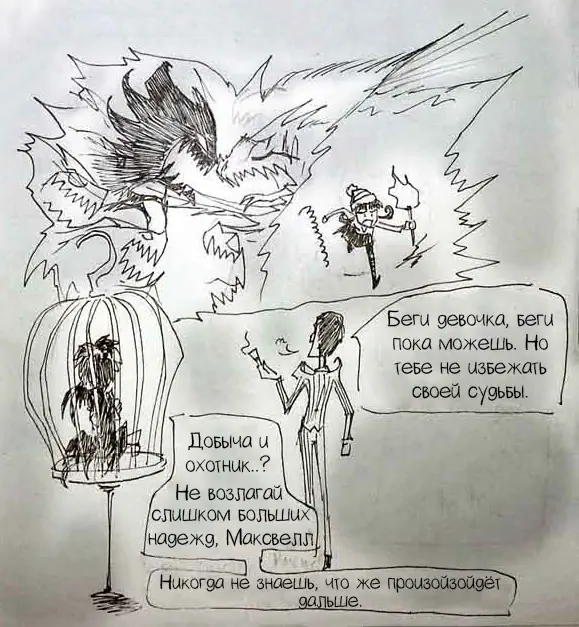 Беги девочка, беги
пока можешь. Но
тебе не избежать
своей судьбы.
Добыча и
охотник..?
Не возлагай
слишком больших
надежд, Максвелл
Никогда не знаешь, что же произойзойдёт
дальше.